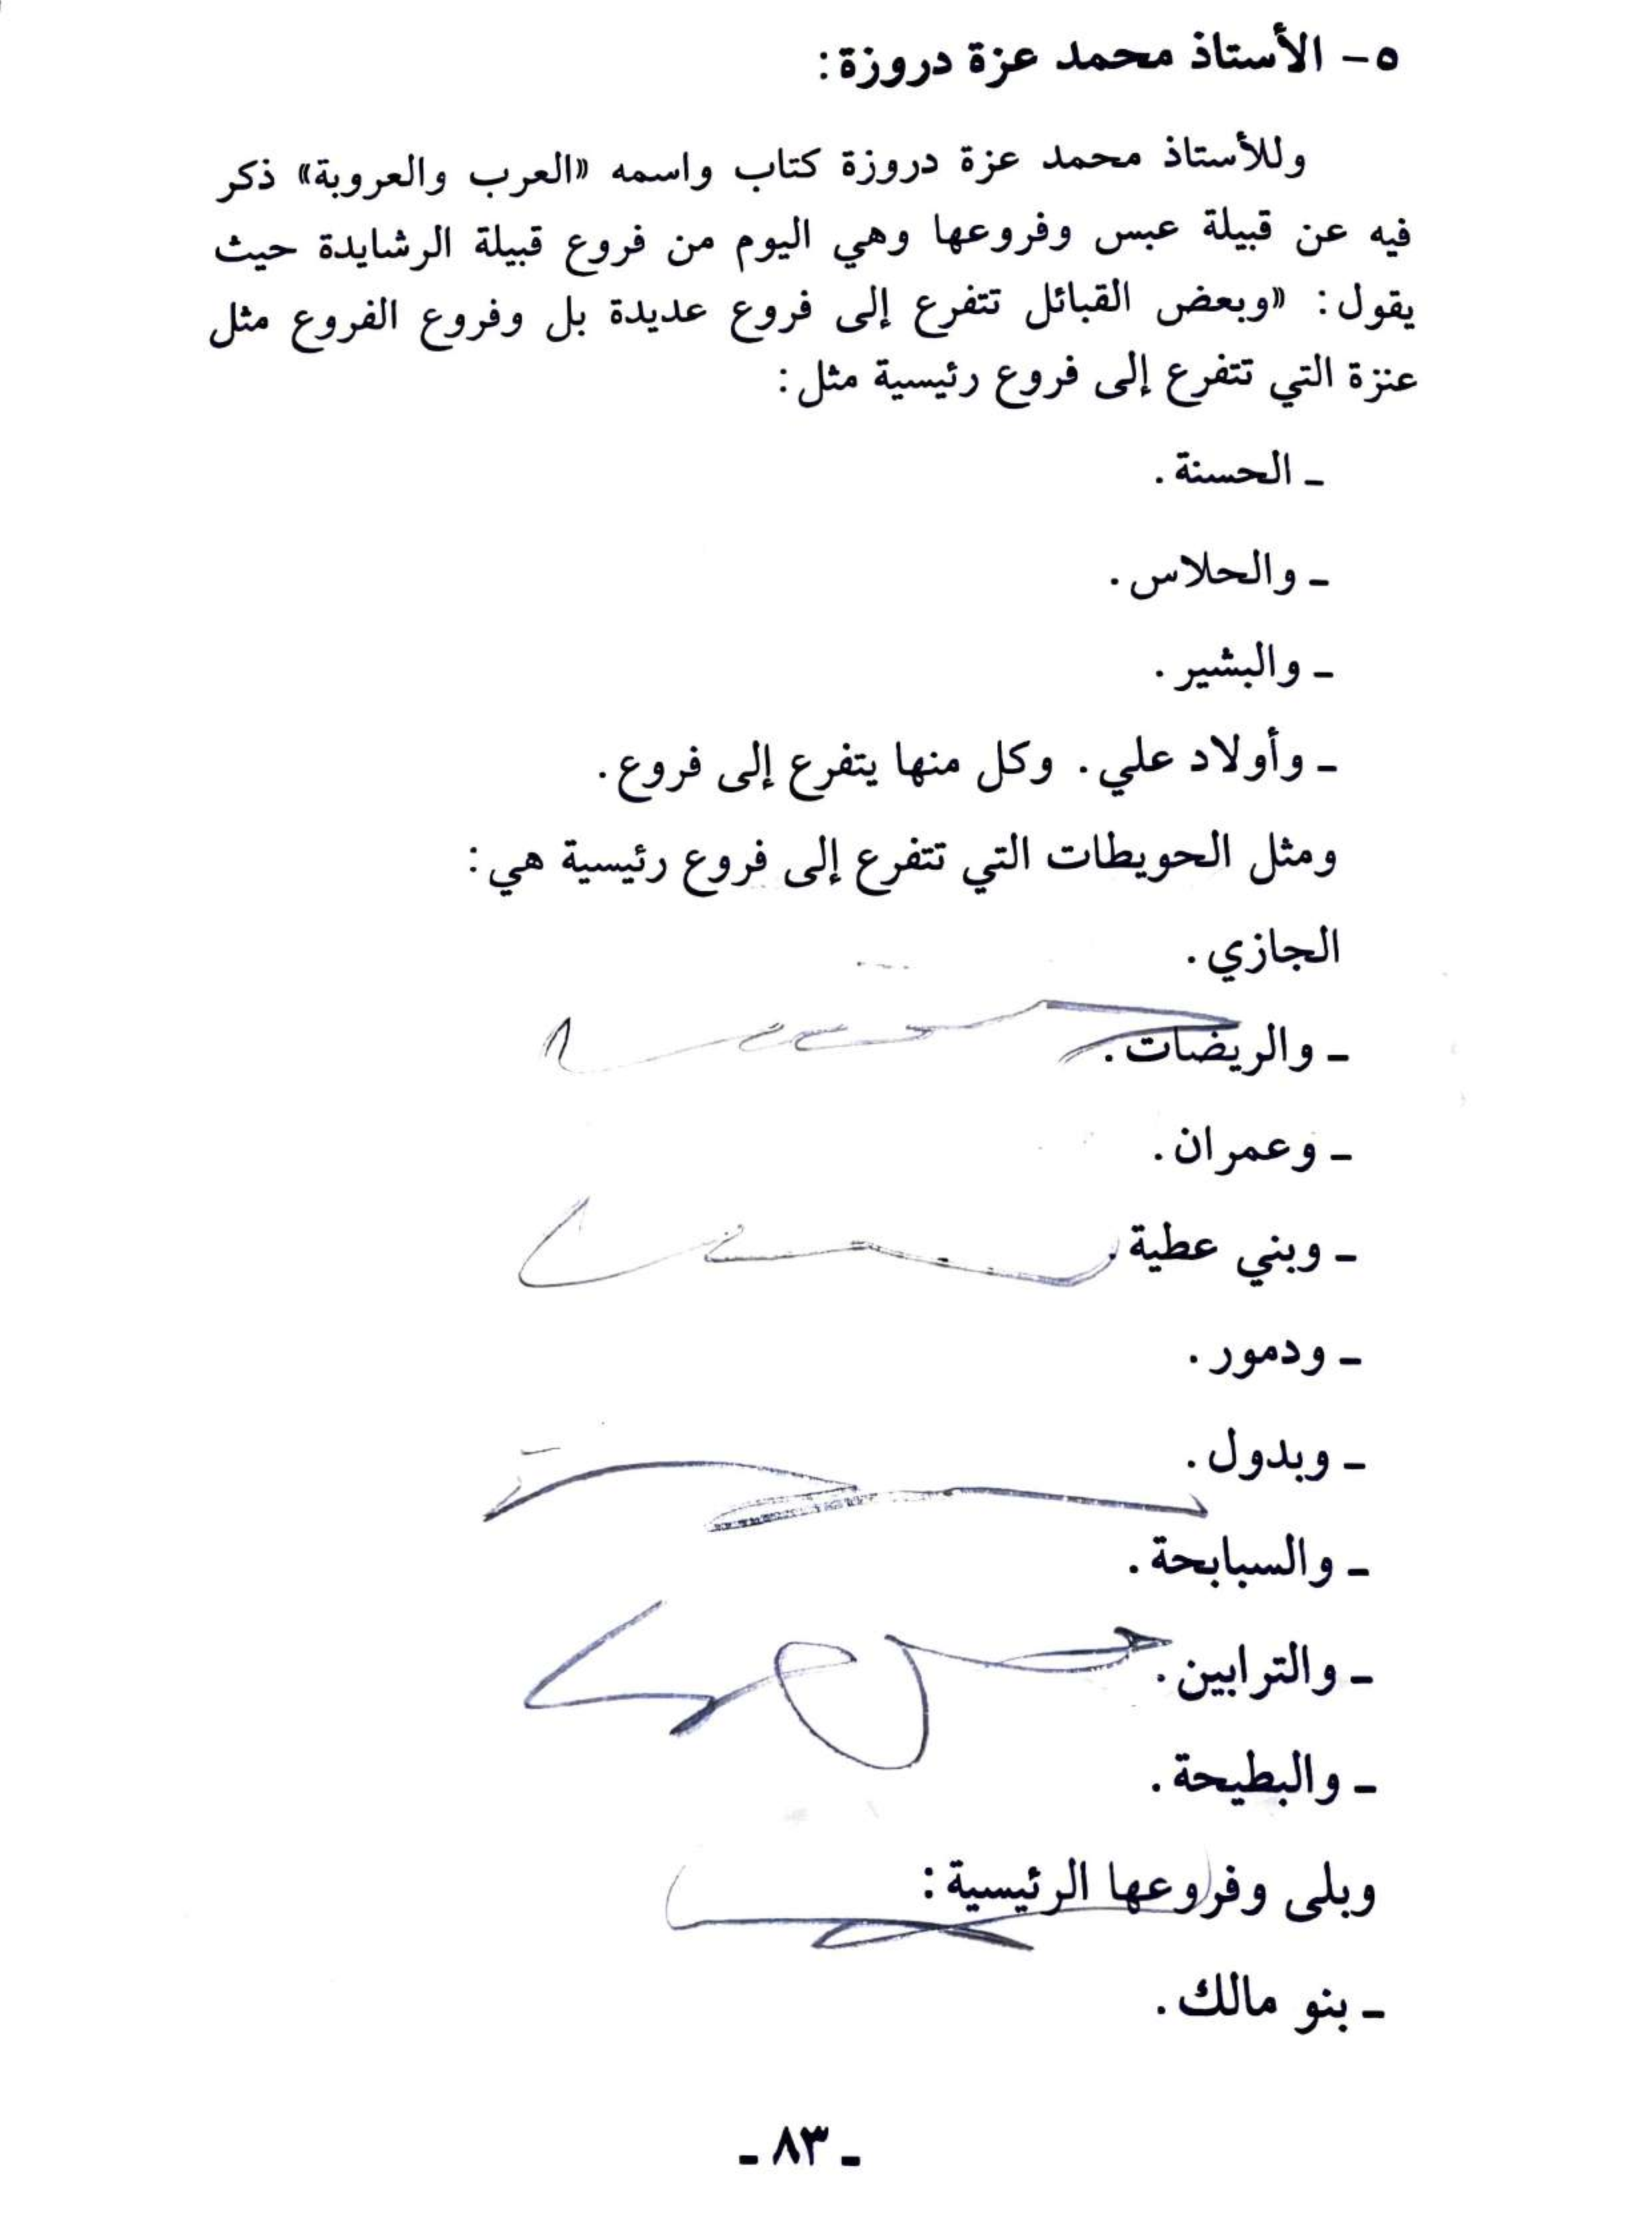 ٥- الأستاذ محمد عزة دروزة:
وللأستاذ محمد عزة دروزة كتاب واسمه «العرب والعروبة» ذكر
فيه عن قبيلة عبس وفروعها وهي اليوم من فروع قبيلة الرشايدة حيث
يقول: «وبعض القبائل تتفرع إلى فروع عديدة بل وفروع الفروع مثل
عنزة التي تتفرع إلى فروع رئيسية مثل:
ـ الحسنة.
ـ والحلاس.
ـ والبشير.
ـ وأولاد علي. وكل منها يتفرع إلى فروع.
ومثل الحويطات التي تتفرع إلى فروع رئيسية هي:
الجازي.
ـ والريضات.
ـ وعمران.
ـ وبني عطية.
ـ ودمور.
ـ وبدول.
ـ والسبابحة.
ـ والترابين.
ـ والبطيحة.
وبلى وفروعها الرئيسية:
ـ بنو مالك.
ـ ٨٣ ـ